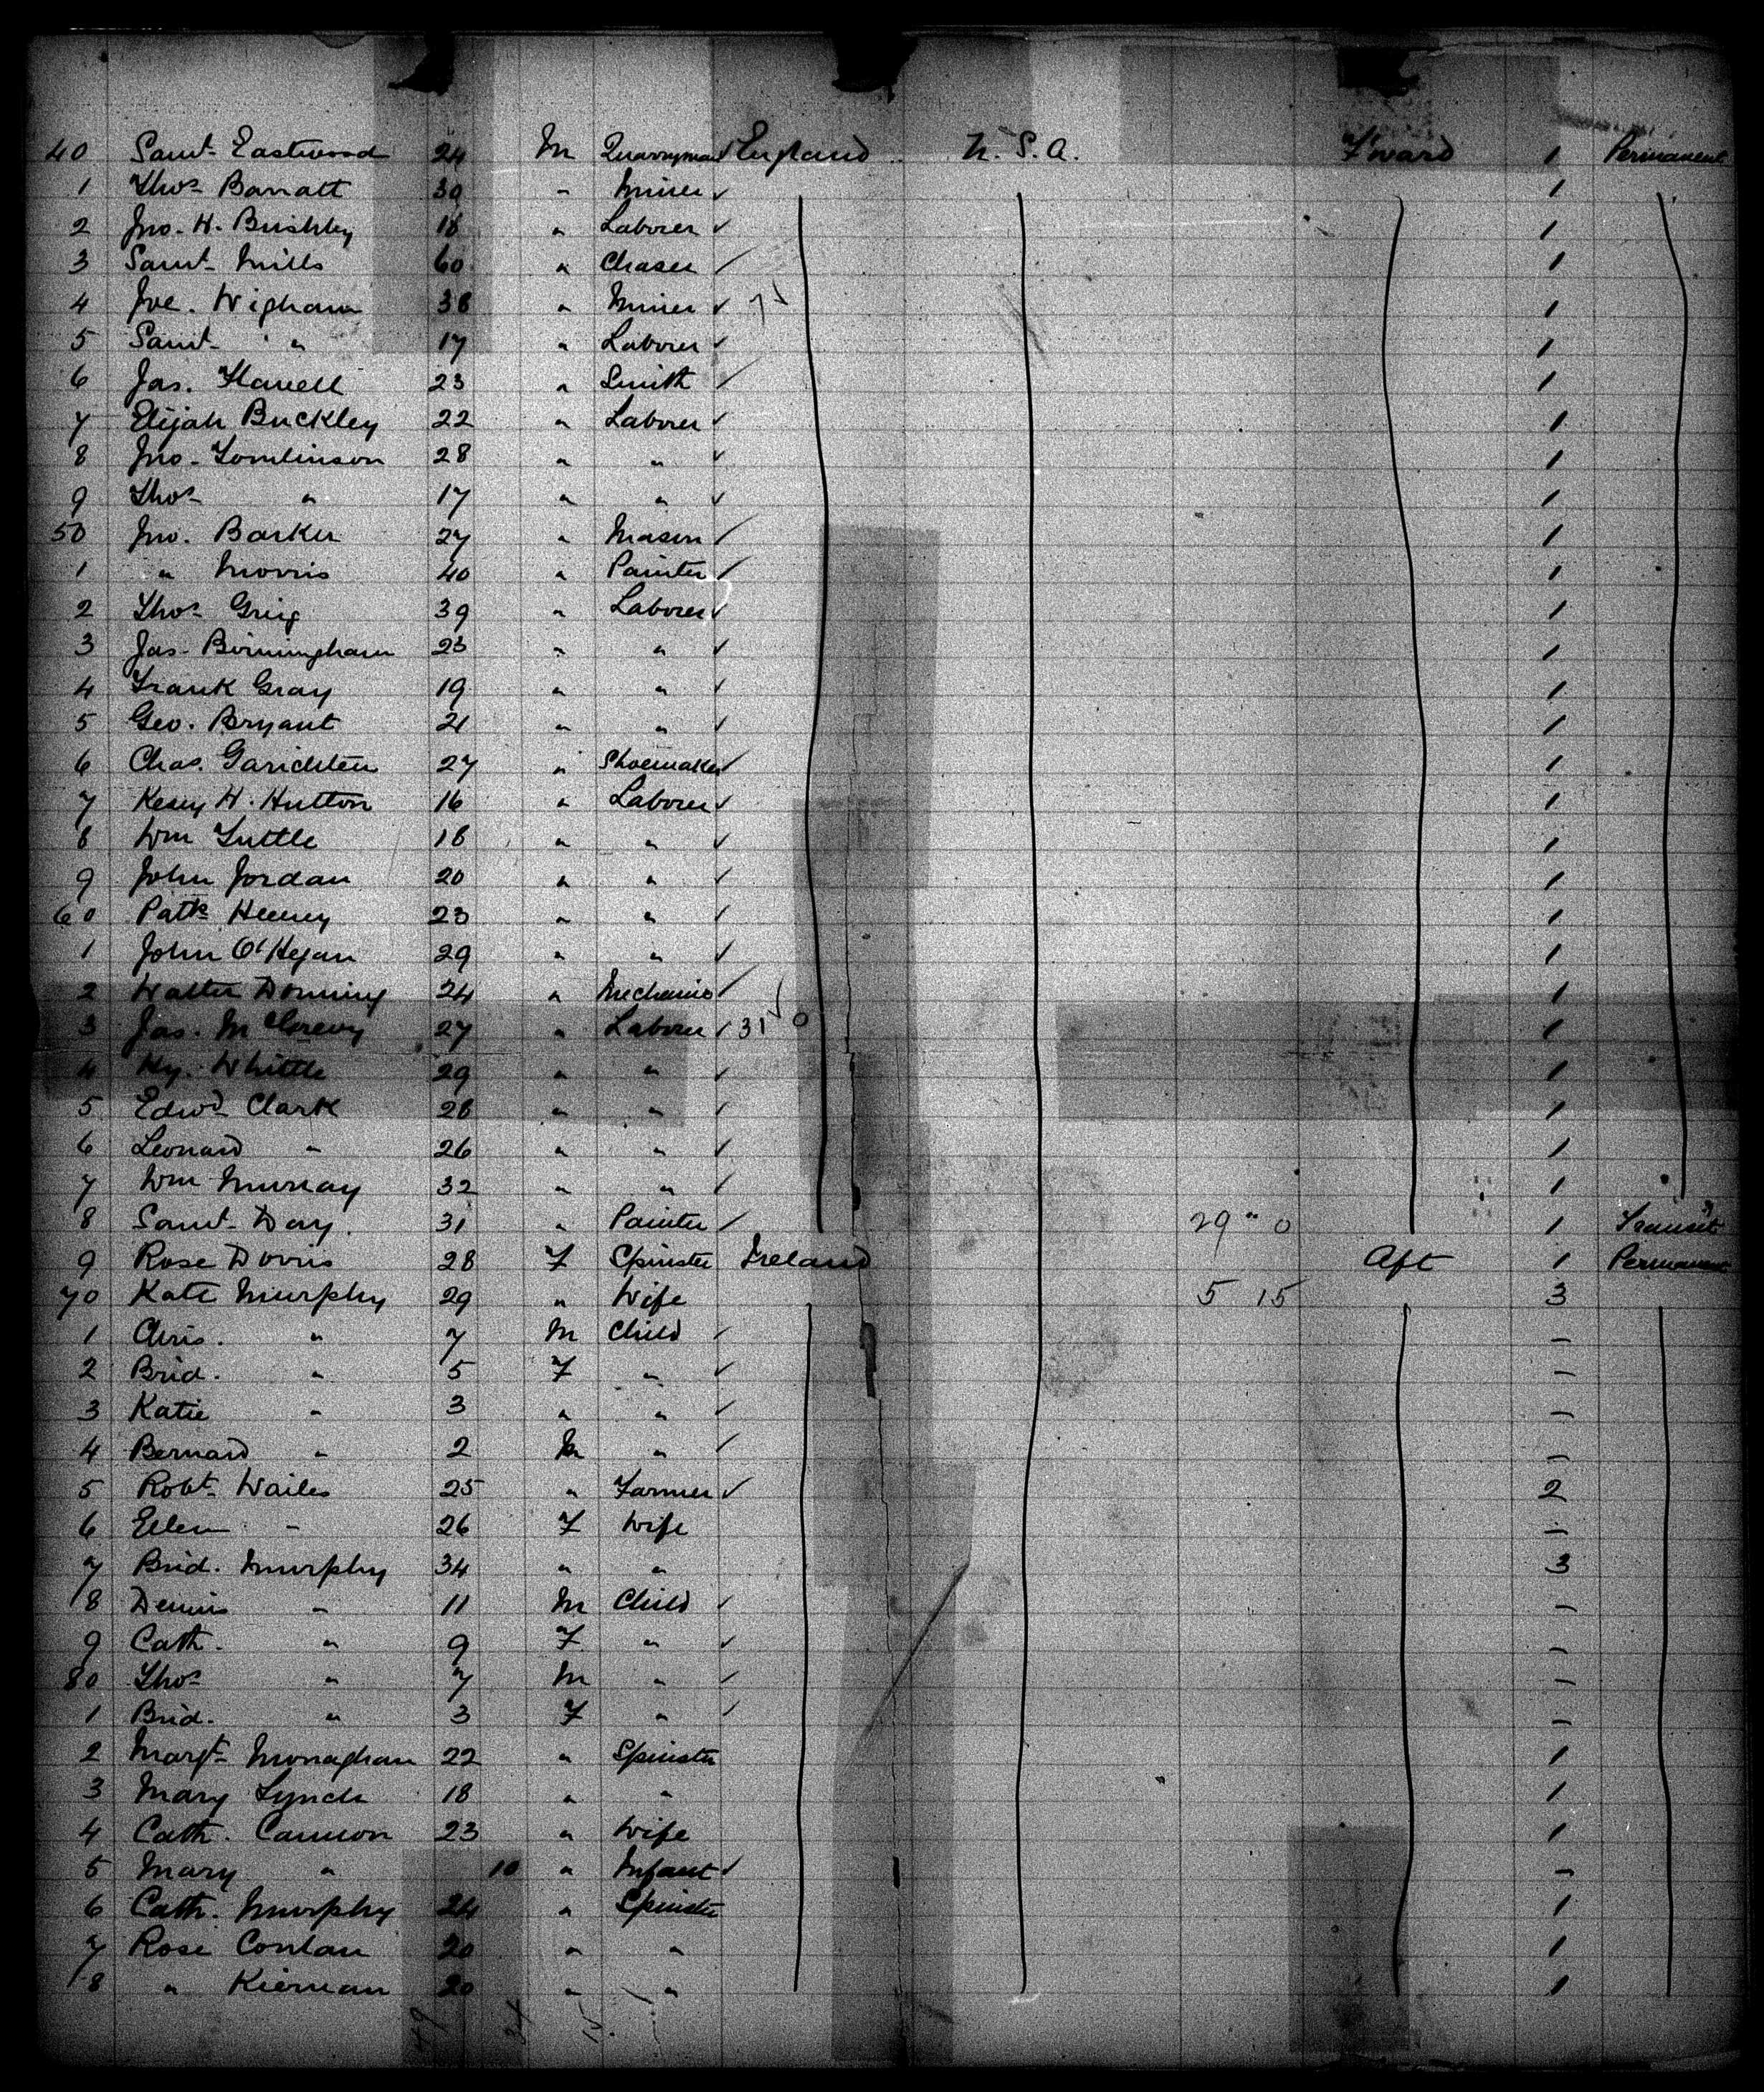 40 Saml. Eastwood 24 M Quarryman England U.S.A. F'ward 1 Permanent
1 Thos Barratt 30 " Miner ✓ 1
2 Jno. H. 18 " Laborer ✓ 1
3 Saml. Mills 60 " Chaser ✓ 1
4 Joe. Wigham 38 " Miner ✓ 1
5 Saml. " 17 " Laborer ✓ 1
6 Jas. 23 " Smith ✓ 1
7 Elijah Buckley 22 " Laborer ✓ 1
8 Jno. Tomlinson 28 " " ✓ 1
9 Thos " 17 " " ✓ 1
50 Jno. Barker 27 " Mason ✓ 1
1 " Morris 40 " Painter ✓ 1
2 Thos Greig 39 " Laborer ✓ 1
3 Jas. Birmingham 23 " " ✓ 1
4 Frank Gray 19 " " ✓ 1
5 Geo. Bryant 21 " " ✓ 1
6 Chas. 27 " Shoemaker ✓ 1
7 H. Hutton 16 " Laborer ✓ 1
8 Wm Tuttle 18 " " ✓ 1
9 John Jordan 20 " " ✓ 1
60 Patk Heeney 23 " " ✓ 1
1 John O'Hegan 29 " " ✓ 1
2 Walter 24 " Mechanic ✓ 1
3 Jas. 27 " Laborer ✓ 31 0 1
4 Hy. Whittle 29 " " ✓ 1
5 Edwd Clark 28 " " ✓ 1
6 Leonard " 26 " " ✓ 1
7 Wm Murray 32 " " ✓ 1
8 Saml. Day 31 " Painter ✓ 29 " 0 1 Transit
9 Rose Dorris 28 F Spinster Ireland Aft 1 Permanent
70 Kate Murphy 29 " Wife 5 15 3
1 Chris. " 7 M Child ✓ –
2 Brid. " 5 F " ✓ –
3 Katie " 3 " " ✓ –
4 Bernard " 2 M " ✓ –
5 Robt. Wailes 25 " Farmer ✓ 2
6 Ellen " 26 F Wife –
7 Brid. Murphy 34 " " 3
8 Dennis " 11 M Child ✓ –
9 Cath. " 9 F " ✓ –
80 Thos " 7 M " ✓ –
1 Brid. " 3 F " ✓ –
2 Margt. Monaghan 22 " Spinster 1
3 Mary Lynch 18 " " 1
4 Cath. Cannon 23 " Wife 1
5 Mary " 10 " Infant ✓ –
6 Cath. Murphy 24 " Spinster 1
7 Rose Conlan 20 " " 1
8 " Kiernan 20 " " 1